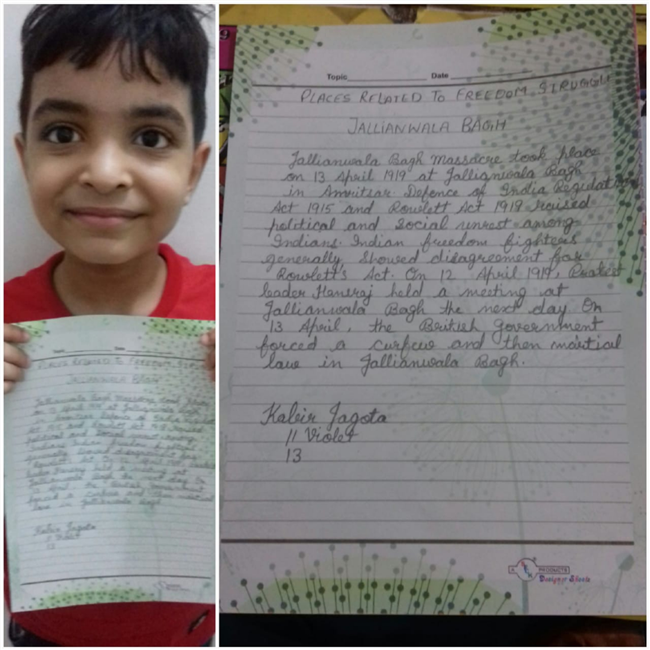 Topic Date
PLACES RELATED TO FREEDOM STRUGGLE
JALLIANWALA BAGH
Jallianwala Bagh Massacre took place
on 13 April 1919 at Jallianwala Bagh
in Amritsar Defence of India Regulation
Act 1915 and Rowlett Act 1919 raised
political and social unrest among
Indians. Indian freedom fighters
generally showed disagreement for
Rowlett's Act. On 12 April 1919, Protest
leader Hansraj held a meeting at
Jallianwala Bagh the next day On
13 April, the British government
forced a curfew and then maitial
law in Jallianwala Bagh.
Kabir Jagota
11 Violet
13
PRODUCTS
Designer Sheets
Topic Date
PLACES RELATED TO FREEDOM
JALLIANWALA BAGH
Kabir Jagota
11 Violet
13